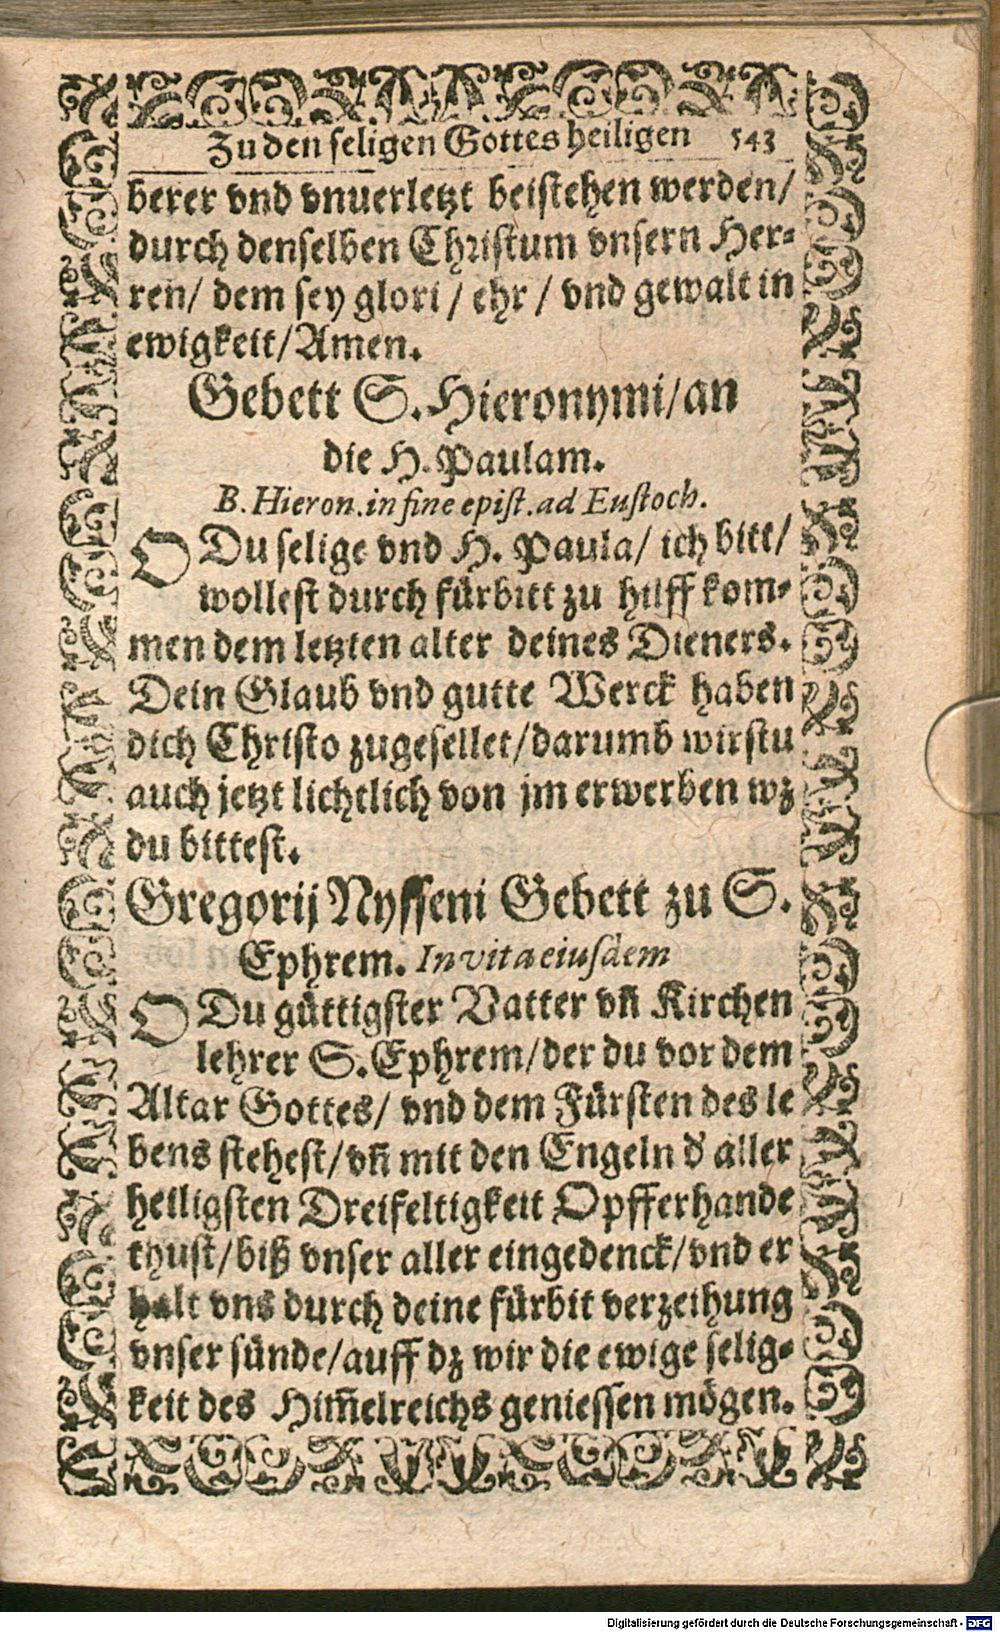 Zu den seligen Gottes heiligen 543
berer vnd vnuerletzt beistehen werden/
durch denselben Christum vnsern Her-
ren/ dem sey glori / ehr / vnd gewalt in
ewigkeit/Amen.
Gebett S. Hieronymi/an
die H. Paulam.
B. Hieron. in fine epist. ad Eustoch.
O Du selige vnd H. Paula/ ich bitt/
wollest durch fürbitt zu hilff kom-
men dem letzten alter deines Dieners.
Dein Glaub vnd gutte Werck haben
dich Christo zugesellet/darumb wirstu
auch jetzt lichtlich von jm erwerben wz
du bittest.
Gregorij Nysseni Gebett zu S.
Ephrem. In vita eiusdem
O Du güttigster Vatter vñ Kirchen
lehrer S. Ephrem/der du vor dem
Altar Gottes/ vnd dem Fürsten des le
bens stehest/vñ mit den Engeln d' aller
heiligsten Dreifeltigkeit Opfferhande
thust/biß vnser aller eingedenck/vnd er
halt vns durch deine fürbit verzeihung
vnser sünde/auff dz wir die ewige selig-
keit des Him̃elreichs geniessen mögen.
Digitalisierung gefördert durch die Deutsche Forschungsgemeinschaft - DFG